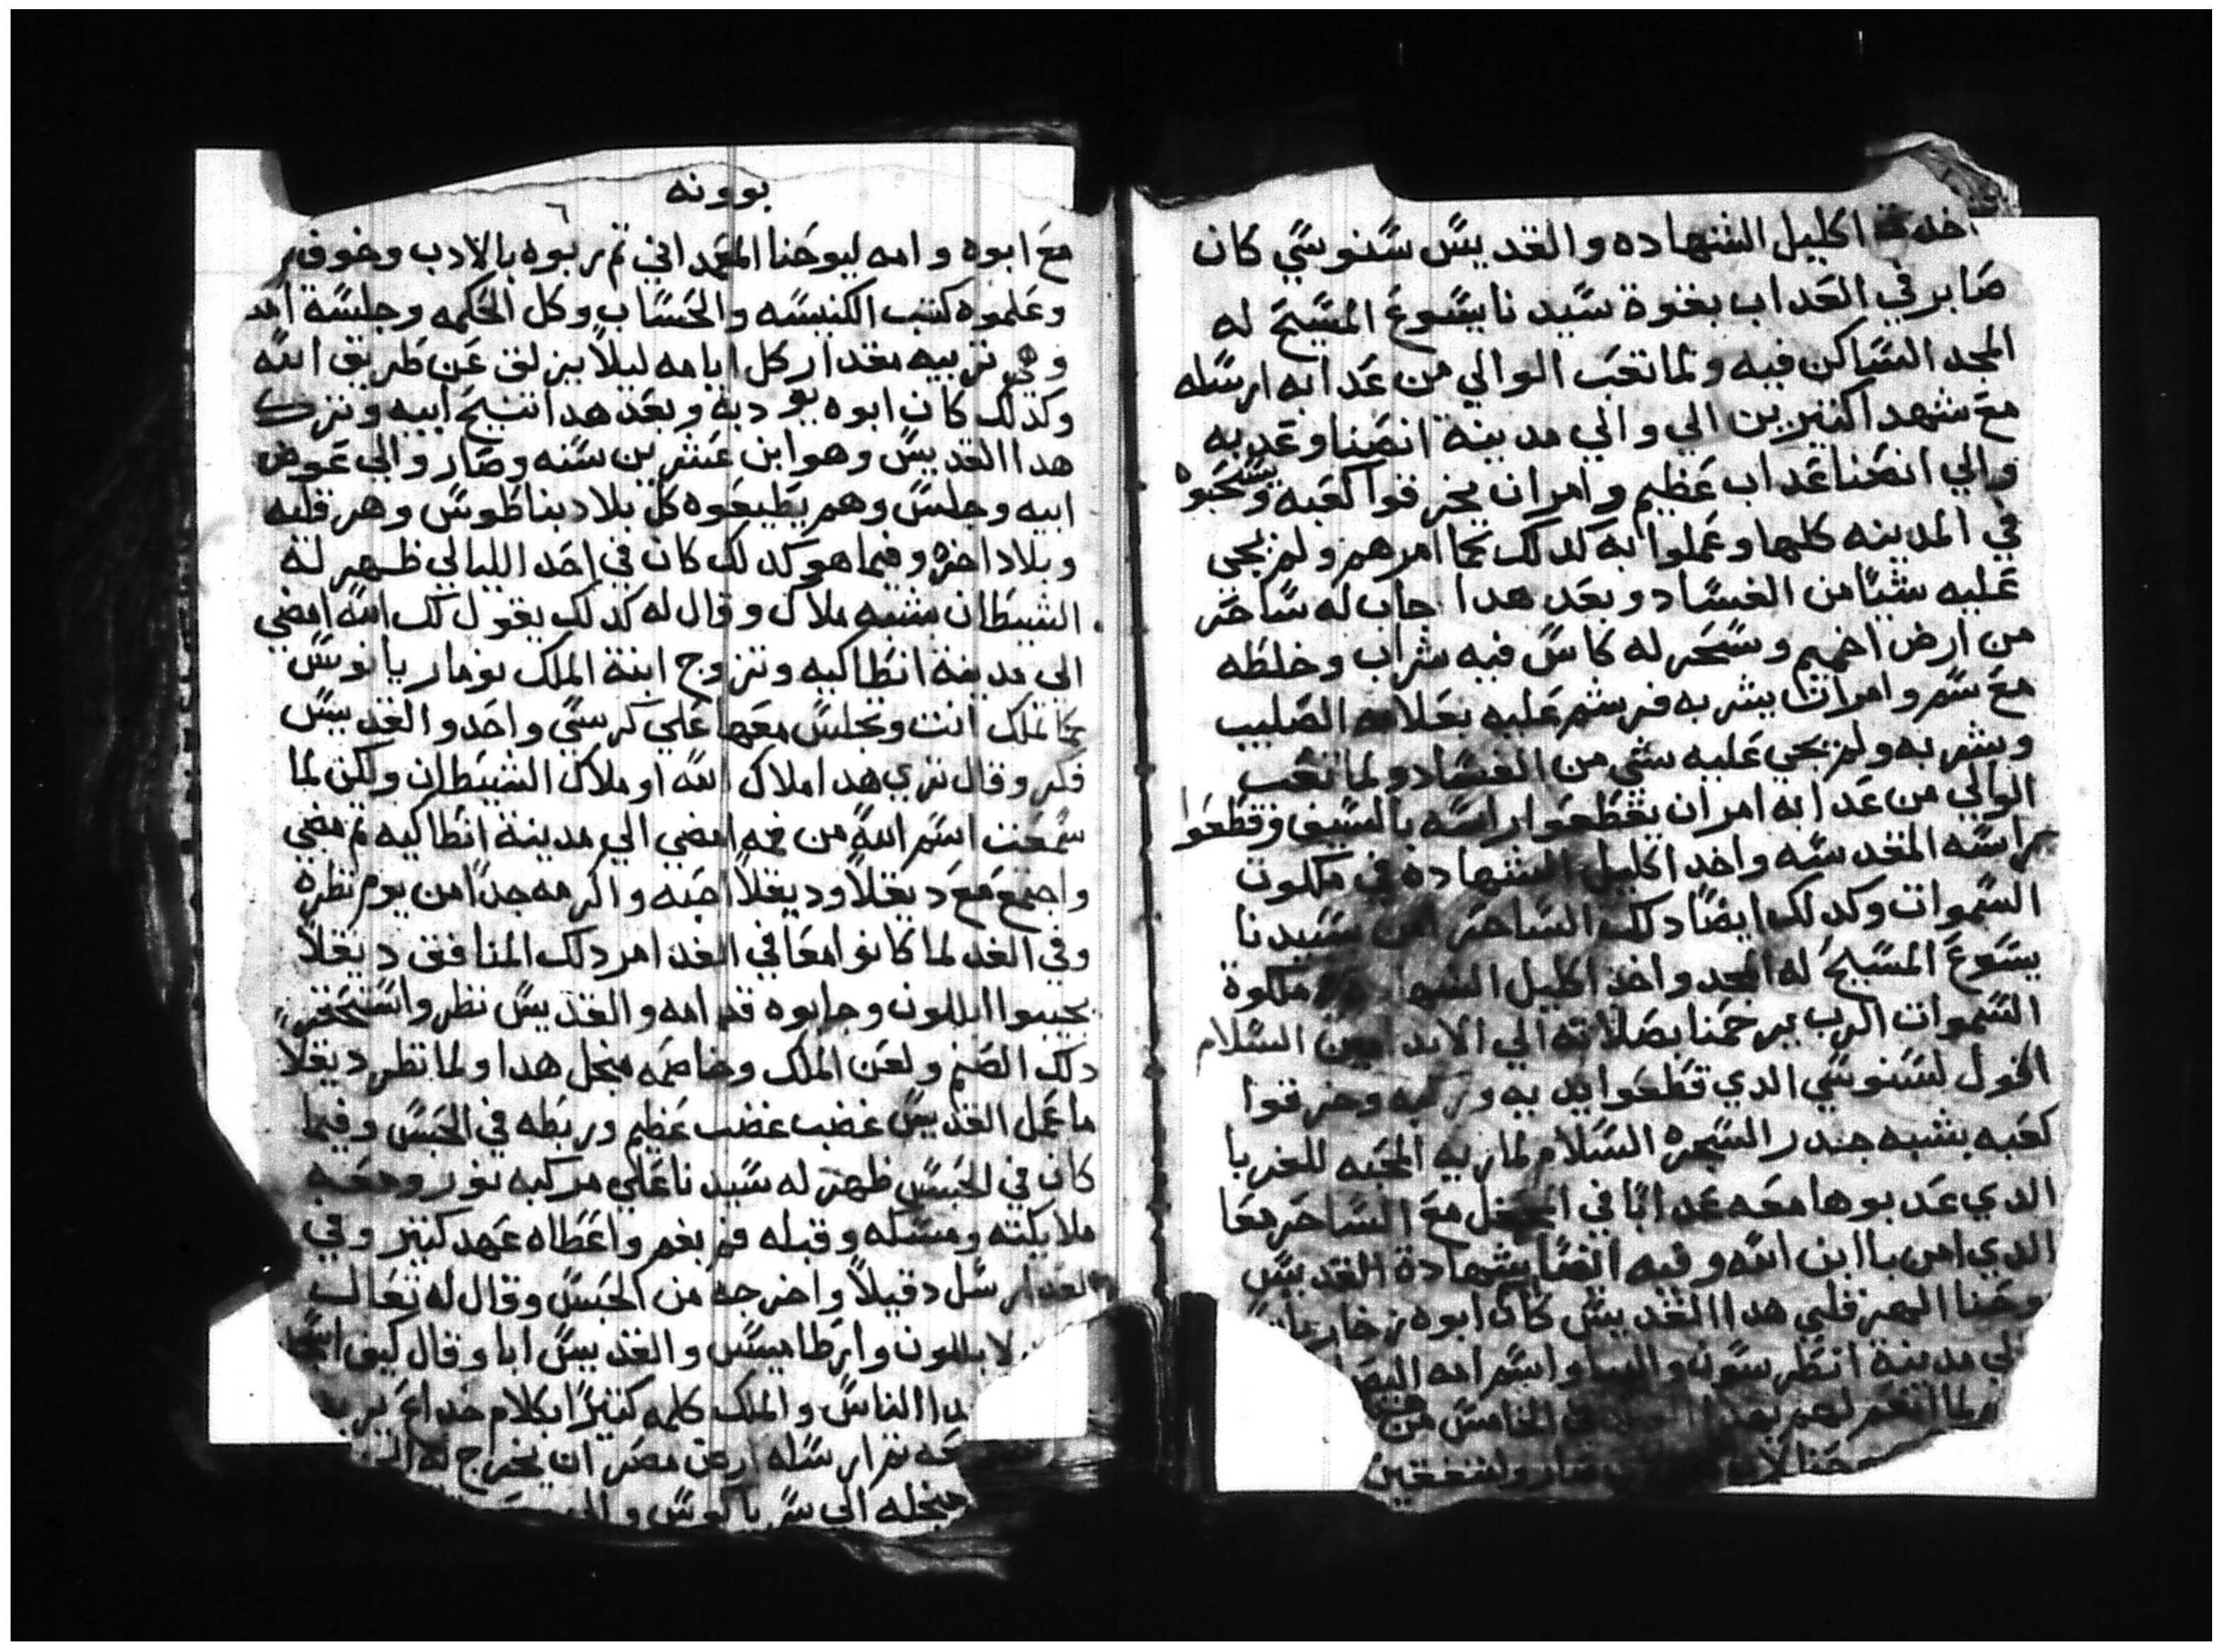 اكليل الشهاده والقديس سنوسي كان
صابر في العداب بقوة سيدنا يسوع المسيح له
المجد الساكن فيه ولما تعب الوالي من عدابه ارسله
مع شهدا كثيرين الي والي مدينة انصنا وعدبه
والي انصنا عداب عظيم وامر ان يخرقوا كعبه ويسحبوه
في المدينه كلها وعملوا به كدلك كما امرهم ولم يجي
عليه شيا من الفساد وبعد هدا جاب له ساحر
من ارض اخميم وسحر له كاس فيه شراب وخلطه
مع سم وامر ان يشربه فرشم عليه بعلامه الصليب
وشربه ولم يجي عليه شي من الفساد ولما تعب
الوالي من عدابه امر ان يقطعوا راسه بالسيف وقطعوا
راسه المقدسه واخد اكليل الشهاده في ملكوت
السموات وكدلك ايضا دلك الساحر امن سيدنا
يسوع المسيح له المجد واخد اكليل ملكوة
السموات الرب يرحمنا بصلاته الي الابد امين السلام
اقول لسنوسي الدي قطعوا يديه وخرقوا
كعبه بشبه جندر الشجره السلام لماريه المحبه للغربا
الدي عدبوها معه عدابا في المحفل مع الساحر معا
الدي امن باابن الله وفيه ايضا شهادة القديس
يوحنا الهرقلي هدا القديس كان ابوه
مدينة واسم امه
في الخامس من
بوونه
مع ابوه وامه ليوحنا المعمداني ثم ربوه بالادب وخوف
وعلموه كتب الكنيسه والحساب وكل الحكمه وجلسة امه
وهي تربيه مقدار كل ايامه ليلا يزلق عن طريق الله
وكدلك كان ابوه يودبه وبعد هدا تنيح ابيه وترك
هدا القديس وهو ابن عشرين سنه وصار والي عوض
ابيه وجلس وهم يطيعوه كل بلاد بناطوس وهرقليه
وبلاد اخره وفيما هو كدلك كان في احد الليالي ظهر له
الشيطان بشبه ملاك وقال له كدلك يقول لك الله امضي
الي مدينة انطاكيه وتزوج ابنة الملك نوماريانوس
كما تملك انت وتجلس معها علي كرسي واحد والقديس
فكر وقال تري هدا ملاك الله او ملاك الشيطان ولكن لما
سمعت اسم الله من فمه امضي الي مدينة انطاكيه ثم مضي
واجتمع مع ديقلا وديقلا احبه واكرمه جدا من يوم نظره
وفي الغد لما كانوا معا في الغد امر دلك المنافق ديقلا
يجيبوا ابللون وجابوه قدامه والقديس نظر واستحقر
دلك الصنم ولعن الملك وخاصمه منجل هدا ولما نظر ديقلا
ما عمل القديس غضب غضب عظيم وربطه في الحبس وفيما
كان في الحبس ظهر له سيدنا علي مركبه نور ومعه
ملايكته ومسكه وقبله فم بفم واعطاه عهد كثير وفي
الغد ارسل دقيلا واخرجه من الحبس وقال له تعالى
لابللون وارطاميس والقديس ابا وقال كيف
الناس والملك كلمه كثيرا بكلام خداع
ثم ارسله ارض مصر ان يخرج له
منجله الي